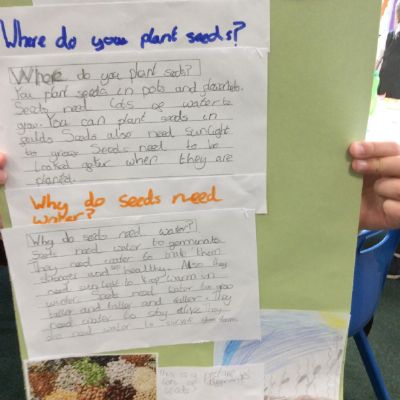 Where do you plant seeds?
Where do you plant seeds?
You plant seeds in pots and
Seeds need lots of water to
grow. You can plant seeds in
Seeds also need sunlight
to grow Seeds need to be
looked after when they are
planted.
Why do seeds need
water?
Why do seeds need water?
Seeds need water to germinate
They need water to make them
stronger and healthy. Also they
need sunlight to keep warm in
winter. Seeds need water to grow
taller and taller and taller. They
need water to stay alive They
also need water to
This is a picture
lots of
seeds